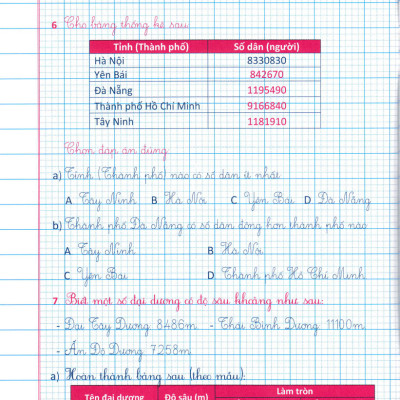 6 Cho bảng thống kê sau:
Tỉnh (Thành phố) Số dân (người)
Hà Nội 8330830
Yên Bái 842670
Đà Nẵng 1195490
Thành phố Hồ Chí Minh 9166840
Tây Ninh 1181910
Chọn đáp án đúng:
a) Tỉnh (Thành phố) nào có số dân ít nhất
A Tây Ninh B Hà Nội C Yên Bái D Đà Nẵng
b) Thành phố Đà Nẵng có số dân đông hơn thành phố nào
A Tây Ninh B Hà Nội
C Yên Bái D Thành phố Hồ Chí Minh
7 Biết một số đại dương có độ sâu khoảng như sau:
- Đại Tây Dương 8486m - Thái Bình Dương 11100m
- Ấn Độ Dương 7258m
a) Hoàn thành bảng sau (theo mẫu):
Làm tròn
Tên đại dương Độ sâu (m)